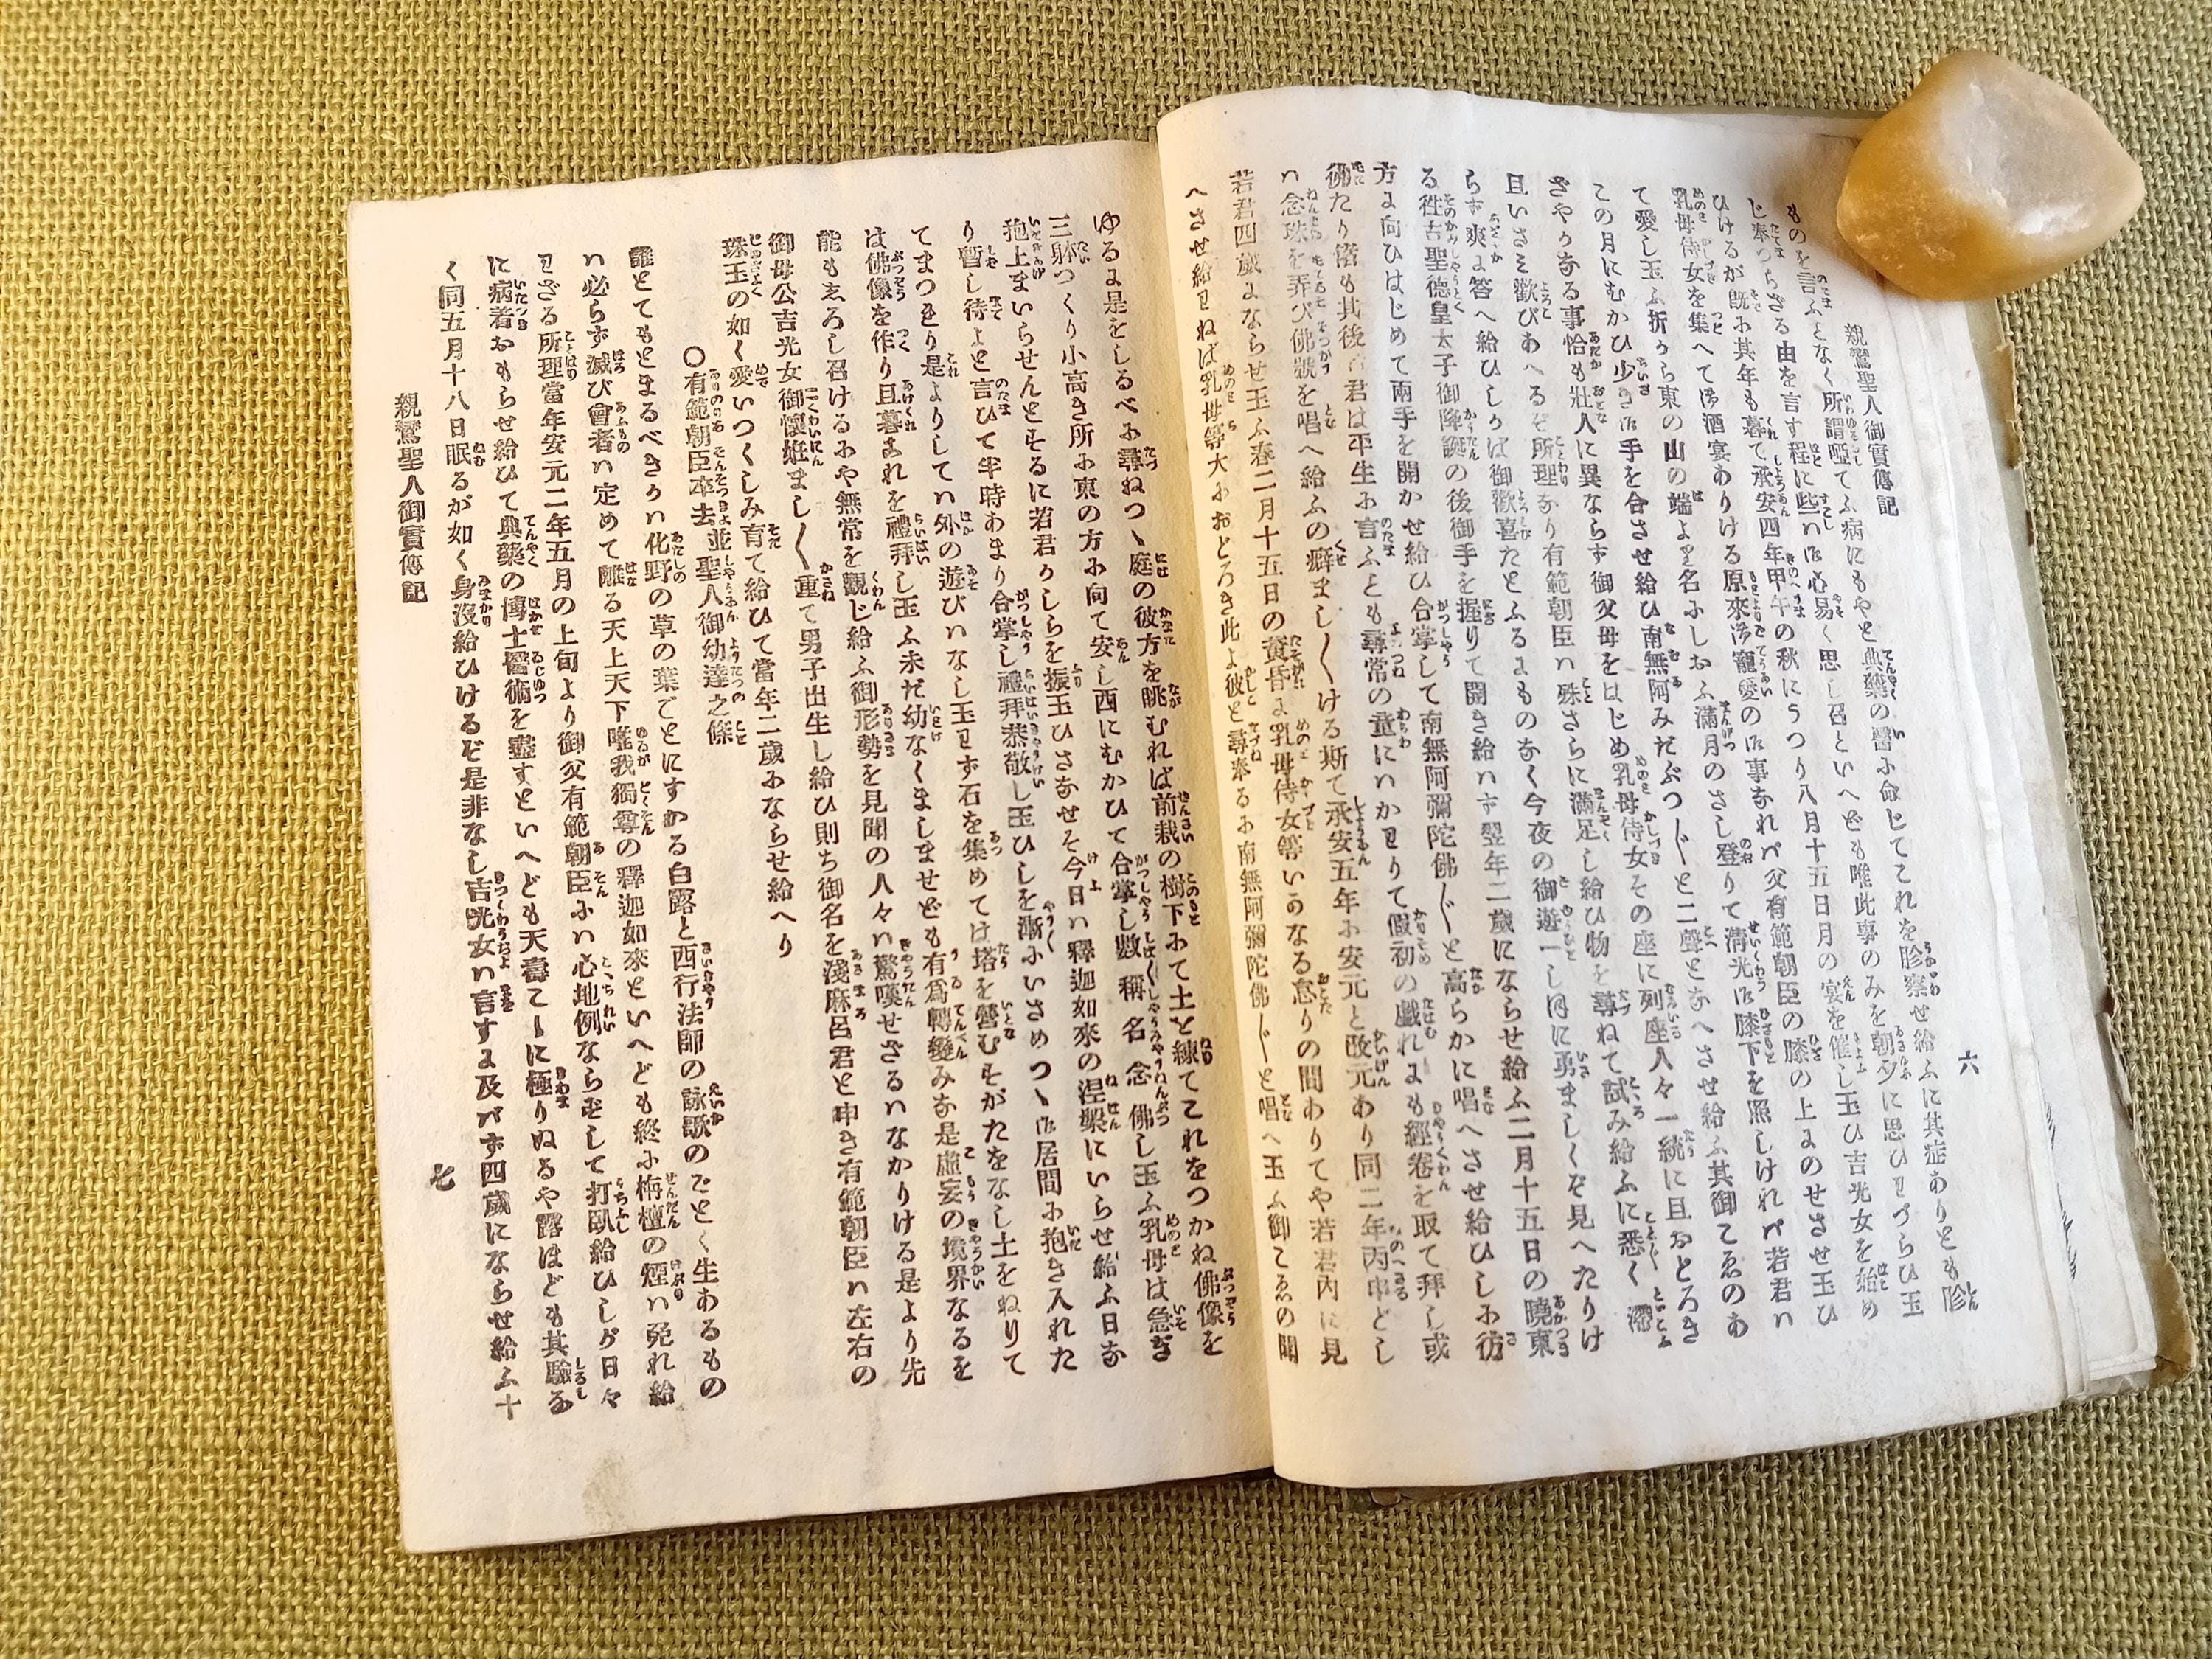 親鸞聖人御實傳記
六
ものを言ふとなく所謂啞てふ病にもやと典藥の醫に命じてこれを診察せ給ふに其症ありとも診
じ奉つらざる由を言す程に些ハ御心易く思し召といへども唯此事のみを朝夕に思ひわづらひ玉
ひけるが既に其年も暮て承安四年甲午の秋にうつり八月十五日月の宴を催し玉ひ吉光女を始め
乳母侍女を集へて御酒宴ありける原來御寵愛の御事なれバ父有範朝臣の膝の上にのせさせ玉ひ
て愛し玉ふ折から東の山の端より名にしおふ滿月のさし登りて淸光御膝下を照しけれバ若君ハ
この月にむかひ少さき御手を合させ給ひ南無阿みだぶつ〳〵と二聲となへさせ給ふ其御こゑのあ
ざやかなる事恰も壯人に異ならず御父母をはじめ乳母侍女その座に列座人々一統に且おどろき
且いさみ歡びあへるぞ所理なり有範朝臣ハ殊さらに滿足し給ひ物を尋ねて試み給ふに悉く滯
らず爽に答へ給ひしかば御歡喜たとふるよものなく今夜の御遊一しほに勇ましくぞ見へたりけ
る徃古聖德皇太子御降誕の後御手を握りて開き給ハず翌年二歲にならせ給ふ二月十五日の曉東
方に向ひはじめて兩手を開かせ給ひ合掌して南無阿彌陀佛〳〵と高らかに唱へさせ給ひしに彷
彿たり倍も其後若君は平生に言ふとも尋常の童にハかわりて假初の戲れにも經卷を取て拜し或
ハ念珠を弄び佛號を唱へ給ふの癖まし〳〵ける斯て承安五年に安元と改元あり同二年丙申どし
若君四歲にならせ玉ふ春二月十五日の黃昏に乳母侍女等いかなる怠りの間ありてや若君內に見
へさせ給わねば乳母等大におどろき此よ彼と尋奉るに南無阿彌陀佛〳〵と唱へ玉ふ御こゑの聞
ゆるに是をしるべに尋ねつヽ庭の彼方を眺むれば前栽の樹下にて土を練てこれをつかね佛像を
三躰つくり小高き所に東の方に向て安し西にむかひて合掌し數稱名念佛し玉ふ乳母は急ぎ
抱上まいらせんとするに若君かしらを振玉ひさなせそ今日ハ釋迦如來の涅槃にいらせ給ふ日な
り暫し待よと言ひて半時あまり合掌し禮拜恭敬し玉ひしを漸にいさめつヽ御居間に抱き入れた
てまつをり是よりしてハ外の遊びハなし玉わず石を集めては塔を營むすがたをなし土をねりて
は佛像を作り旦暮まれを禮拜し玉ふ未だ幼なくましませども有爲轉變みな是虛妄の境界なるを
能もゑろし召けるにや無常を觀じ給ふ御形勢を見聞の人々ハ驚嘆せざるハなかりける是より先
御母公吉光女御懷姙まし〳〵重て男子出生し給ひ則ち御名を淺麻呂君と申き有範朝臣ハ左右の
珠玉の如く愛いつくしみ育て給ひて當年二歲にならせ給へり
〇有範朝臣卒去並聖人御幼達之條
誰とてもとまるべきかハ化野の草の葉ごとにすがる白露と西行法師の詠歌のごとく生あるもの
ハ必らず滅び會者ハ定めて離る天上天下唯我獨尊の釋迦如來といへども終に栴檀の煙ハ免れ給
わざる所理當年安元二年五月の上旬より御父有範朝臣にハ心地例ならずして打臥給ひしが日々
に病着おもらせ給ひて典藥の博士醫術を盡すといへども天壽こヽに極りぬるや露ほども其驗な
く同五月十八日眠るが如く身沒給ひけるぞ是非なし吉光女ハ言すに及バず四歲にならせ給ふ十
親鸞聖人御實傳記
七